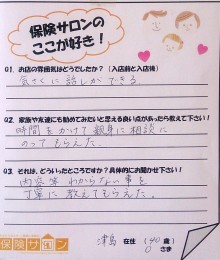 保険サロンの
ここが好き！
Q1. お店の雰囲気はどうでしたか？（入店前と入店後）
気さくに話しができる
Q2. 家族や友達にも勧めてみたいと思える良い点があったら教えて下さい！
時間をかけて親身に相談に
のってもらえた。
Q3. それは、どういったところですか？具体的にお聞かせ下さい！
内容等わからない事を
丁寧に教えてもらえた。
保険サロン
津島 在住 （40 歳）
O さま